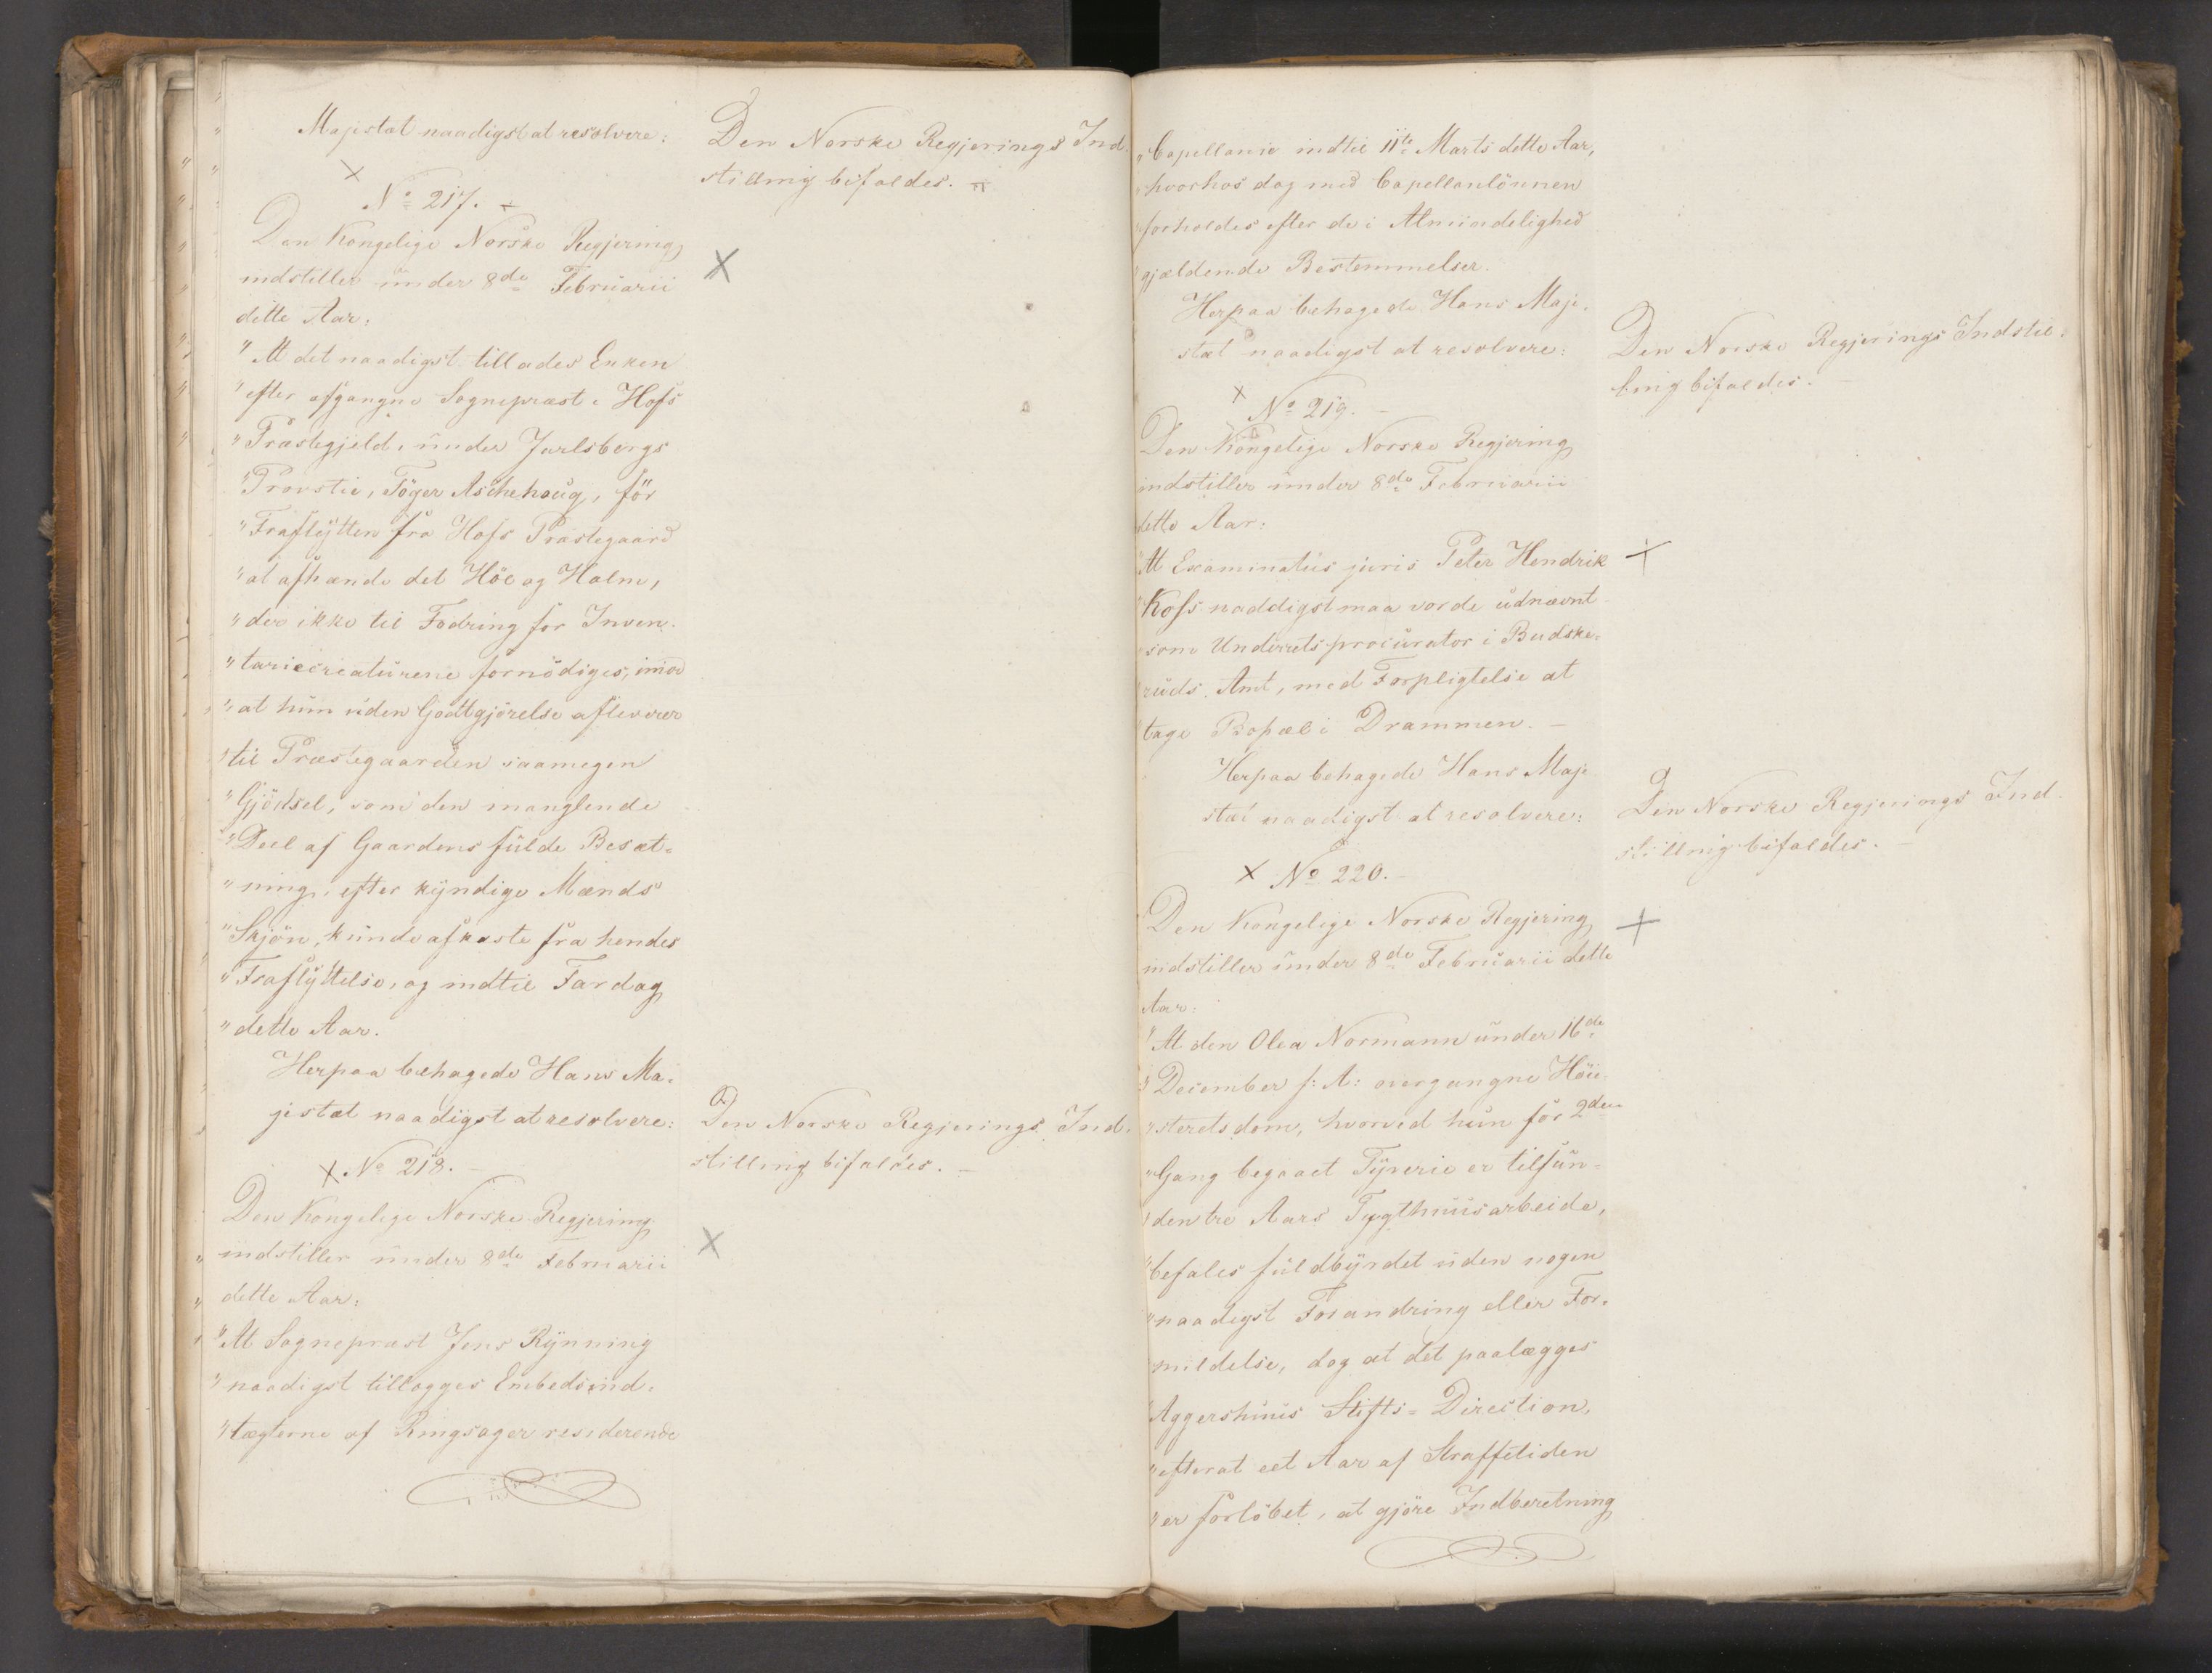 Majestæt naadigst at resolvere:
Den Norske Regjerings Ind-
stilling bifaldes. -
No 217. -
Den Kongelige Norske Regjering
indstiller under 8de Februarii
dette Aar:
"At det naadigst tillades Enken
"efter afgangne Sognepræst i Hofs
"Præstegjeld, under Jarlsbergs
"Provstie, Töger Aschehoug, för
"Fraflytten fra Hofs Præstegaard
"at afhænde det Höe og Halm,
"der ikke til Fodring for Inven-
"tariecreaturene fornödiges, imod
"at hun uden Godtgjörelse afleverer
"til Præstegaarden saamegen
"Gjödsel, som den manglende
"Deel af Gaardens fulde Besæt-
"ning, efter kyndige Mænds
"Skjön, kunde afkaste fra hendes
"Fraflyttelse, og indtil Fardag
"dette Aar.
Herpaa behagede Hans Ma-
jestæt naadigst at resolvere:
Den Norske Regjerings Ind-
stilling bifaldes. -
No 218. -
Den Kongelige Norske Regjering
indstiller under 8de Februarii
dette Aar:
"At Sognepræst Jens Rynning
"naadigst tillægges Embedsind-
"tægterne af Ringsager residerende
"Capellanie indtil 11te Marts dette Aar,
"hvorhos dog med Capellanlönnen
"forholdes efter de i Almindelighed
"gjældende Bestemmelser.
Herpaa behagede Hans Maje-
stæt naadigst at resolvere:
Den Norske Regjerings Indstil-
ling bifaldes. -
No 219. -
Den Kongelige Norske Regjering
indstiller under 8de Februarii
dette Aar:
"At Examinatus juris Peter Hendrik
"Kofs naddigst maa vorde udnævnt
"som Underrets procurator i Budske-
"ruds Amt, med Forpligtelse at
tage Bopæl i Drammen. -
Herpaa behagede Hans Maje
stæt naadigst at resolvere:
Den Norske Regjerings Ind-
stilling bifaldes. -
No 220. -
Den Kongelige Norske Regjering
indstiller under 8de Februarii dette
Aar:
"At den Olea Normann under 16de
"December f: A: overgangne Höie-
"steretsdom, hvorved hun for 2den
"Gang begaaet Tyverie er tilfun-
"den tre Aars Tugthuusarbeide,
"befales fuldbyrdet uden nogen
"naadigst Forandring eller For-
mildelse, dog at det paalægges
"Aggershuus Stifts-Direction,
"efterat eet Aar af Straffetiden
"er forlöbet, at gjöre Indberetning